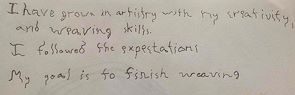 I have grown in artistry with my creativity,
and weaving skills.
I followed the expectations
My goal is to finish weaving